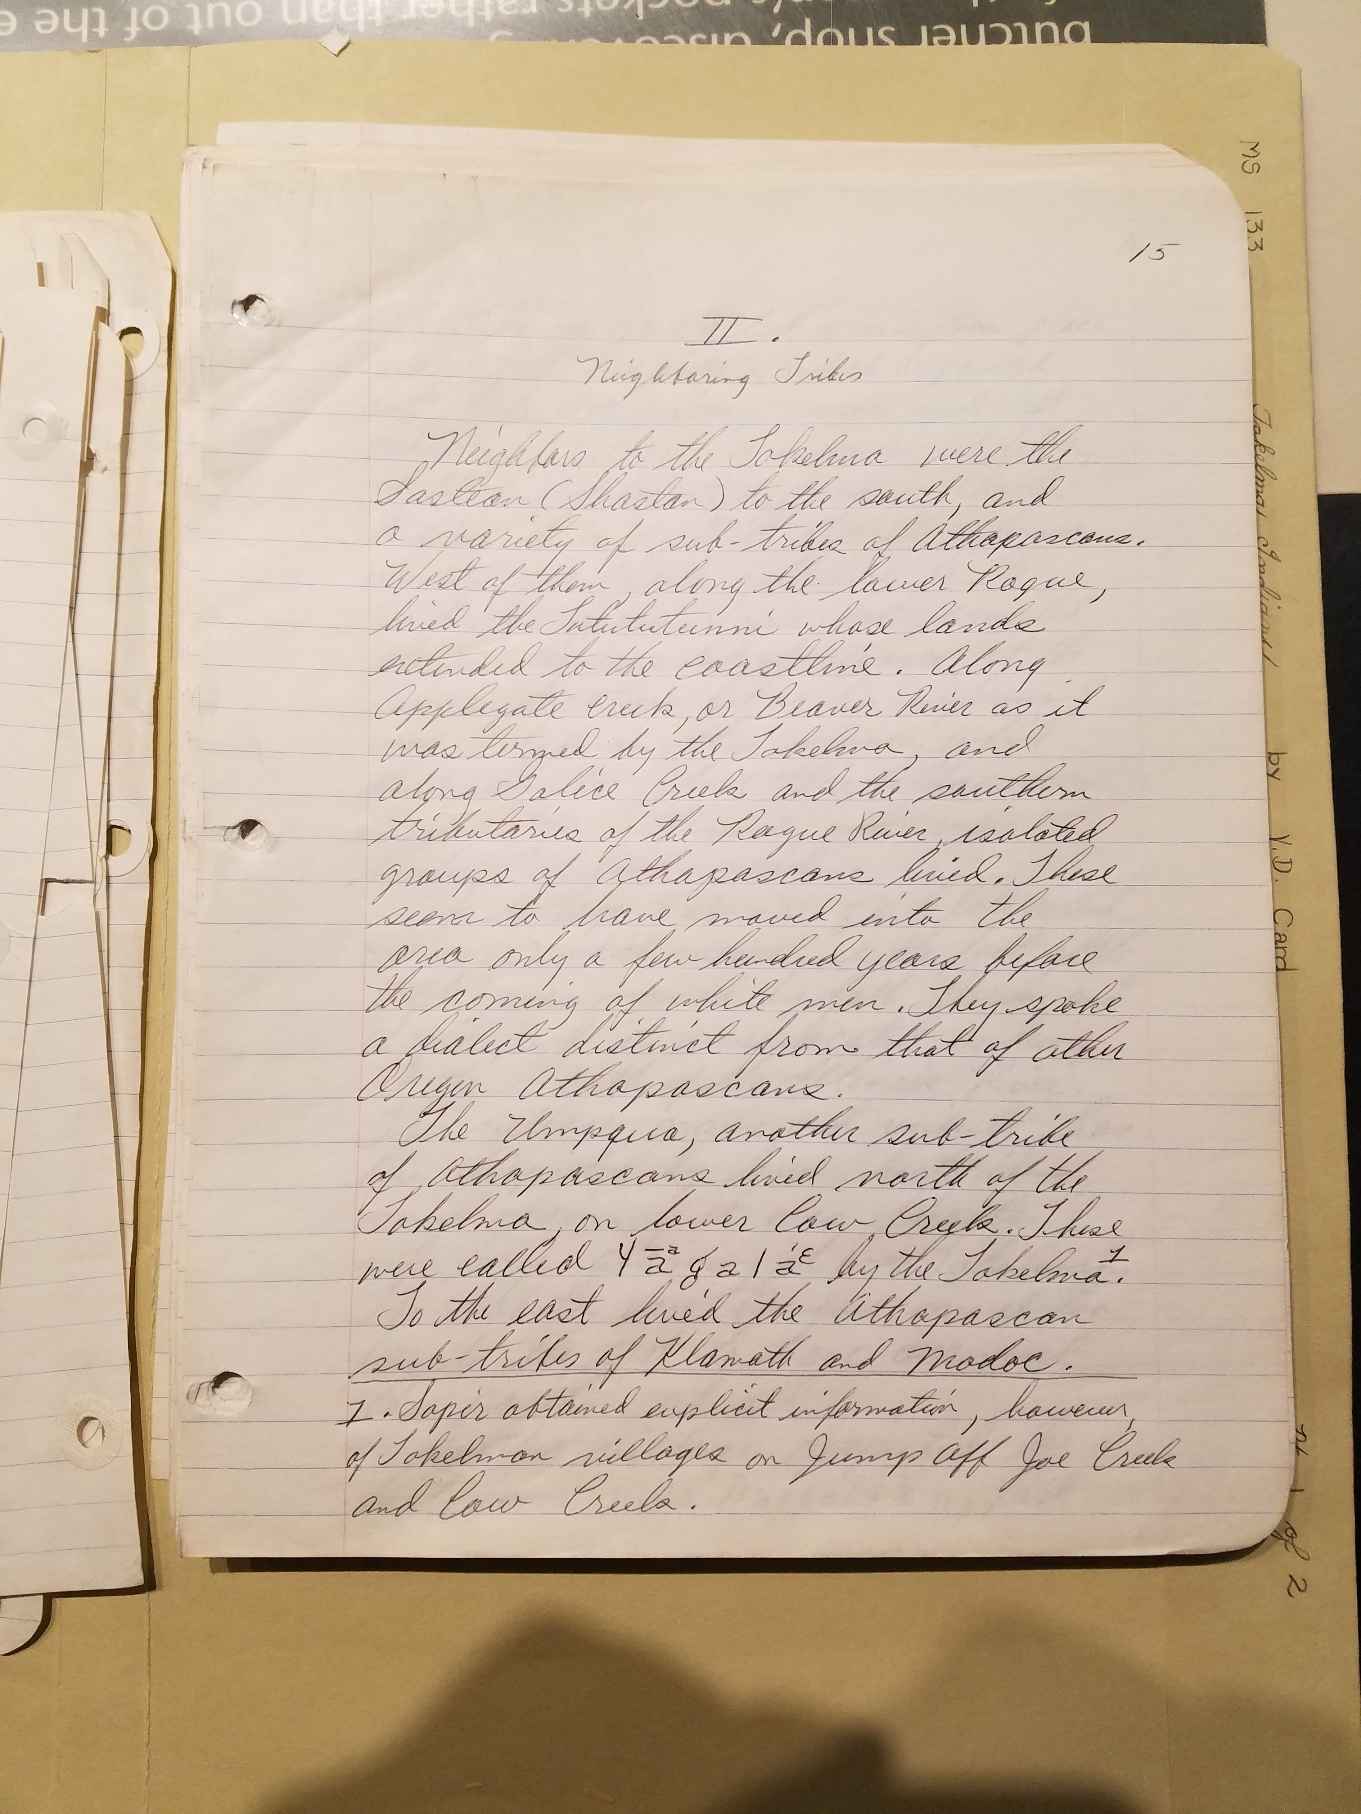 butcher shop, discover
pockets rather than out of the
15
II.
Neighboring Tribes
Neighbors to the Takelma were the
Sastean (Shastan) to the south, and
a variety of sub-tribes of Athapascans.
West of them, along the lower Rogue,
lived the Tututunni whose lands
extended to the coastline. Along
Applegate Creek, or Beaver River as it
was termed by the Takelma, and
along Galice Creek and the southern
tributaries of the Rogue River, isolated
groups of Athapascans lived. These
seem to have moved into the
area only a few hundred years before
the coming of white men. They spoke
a dialect distinct from that of other
Oregon Athapascans.
The Umpqua, another sub-tribe
of Athapascans lived north of the
Takelma, on lower Cow Creek. These
were called by the Takelma.¹
To the east lived the Athapascan
sub-tribes of Klamath and Modoc.
1. Sapir obtained explicit information, however,
of Takelman villages on Jump Off Joe Creek
and Cow Creek.
MS 133 Takelma Indians by Y.D. Card 1 of 2